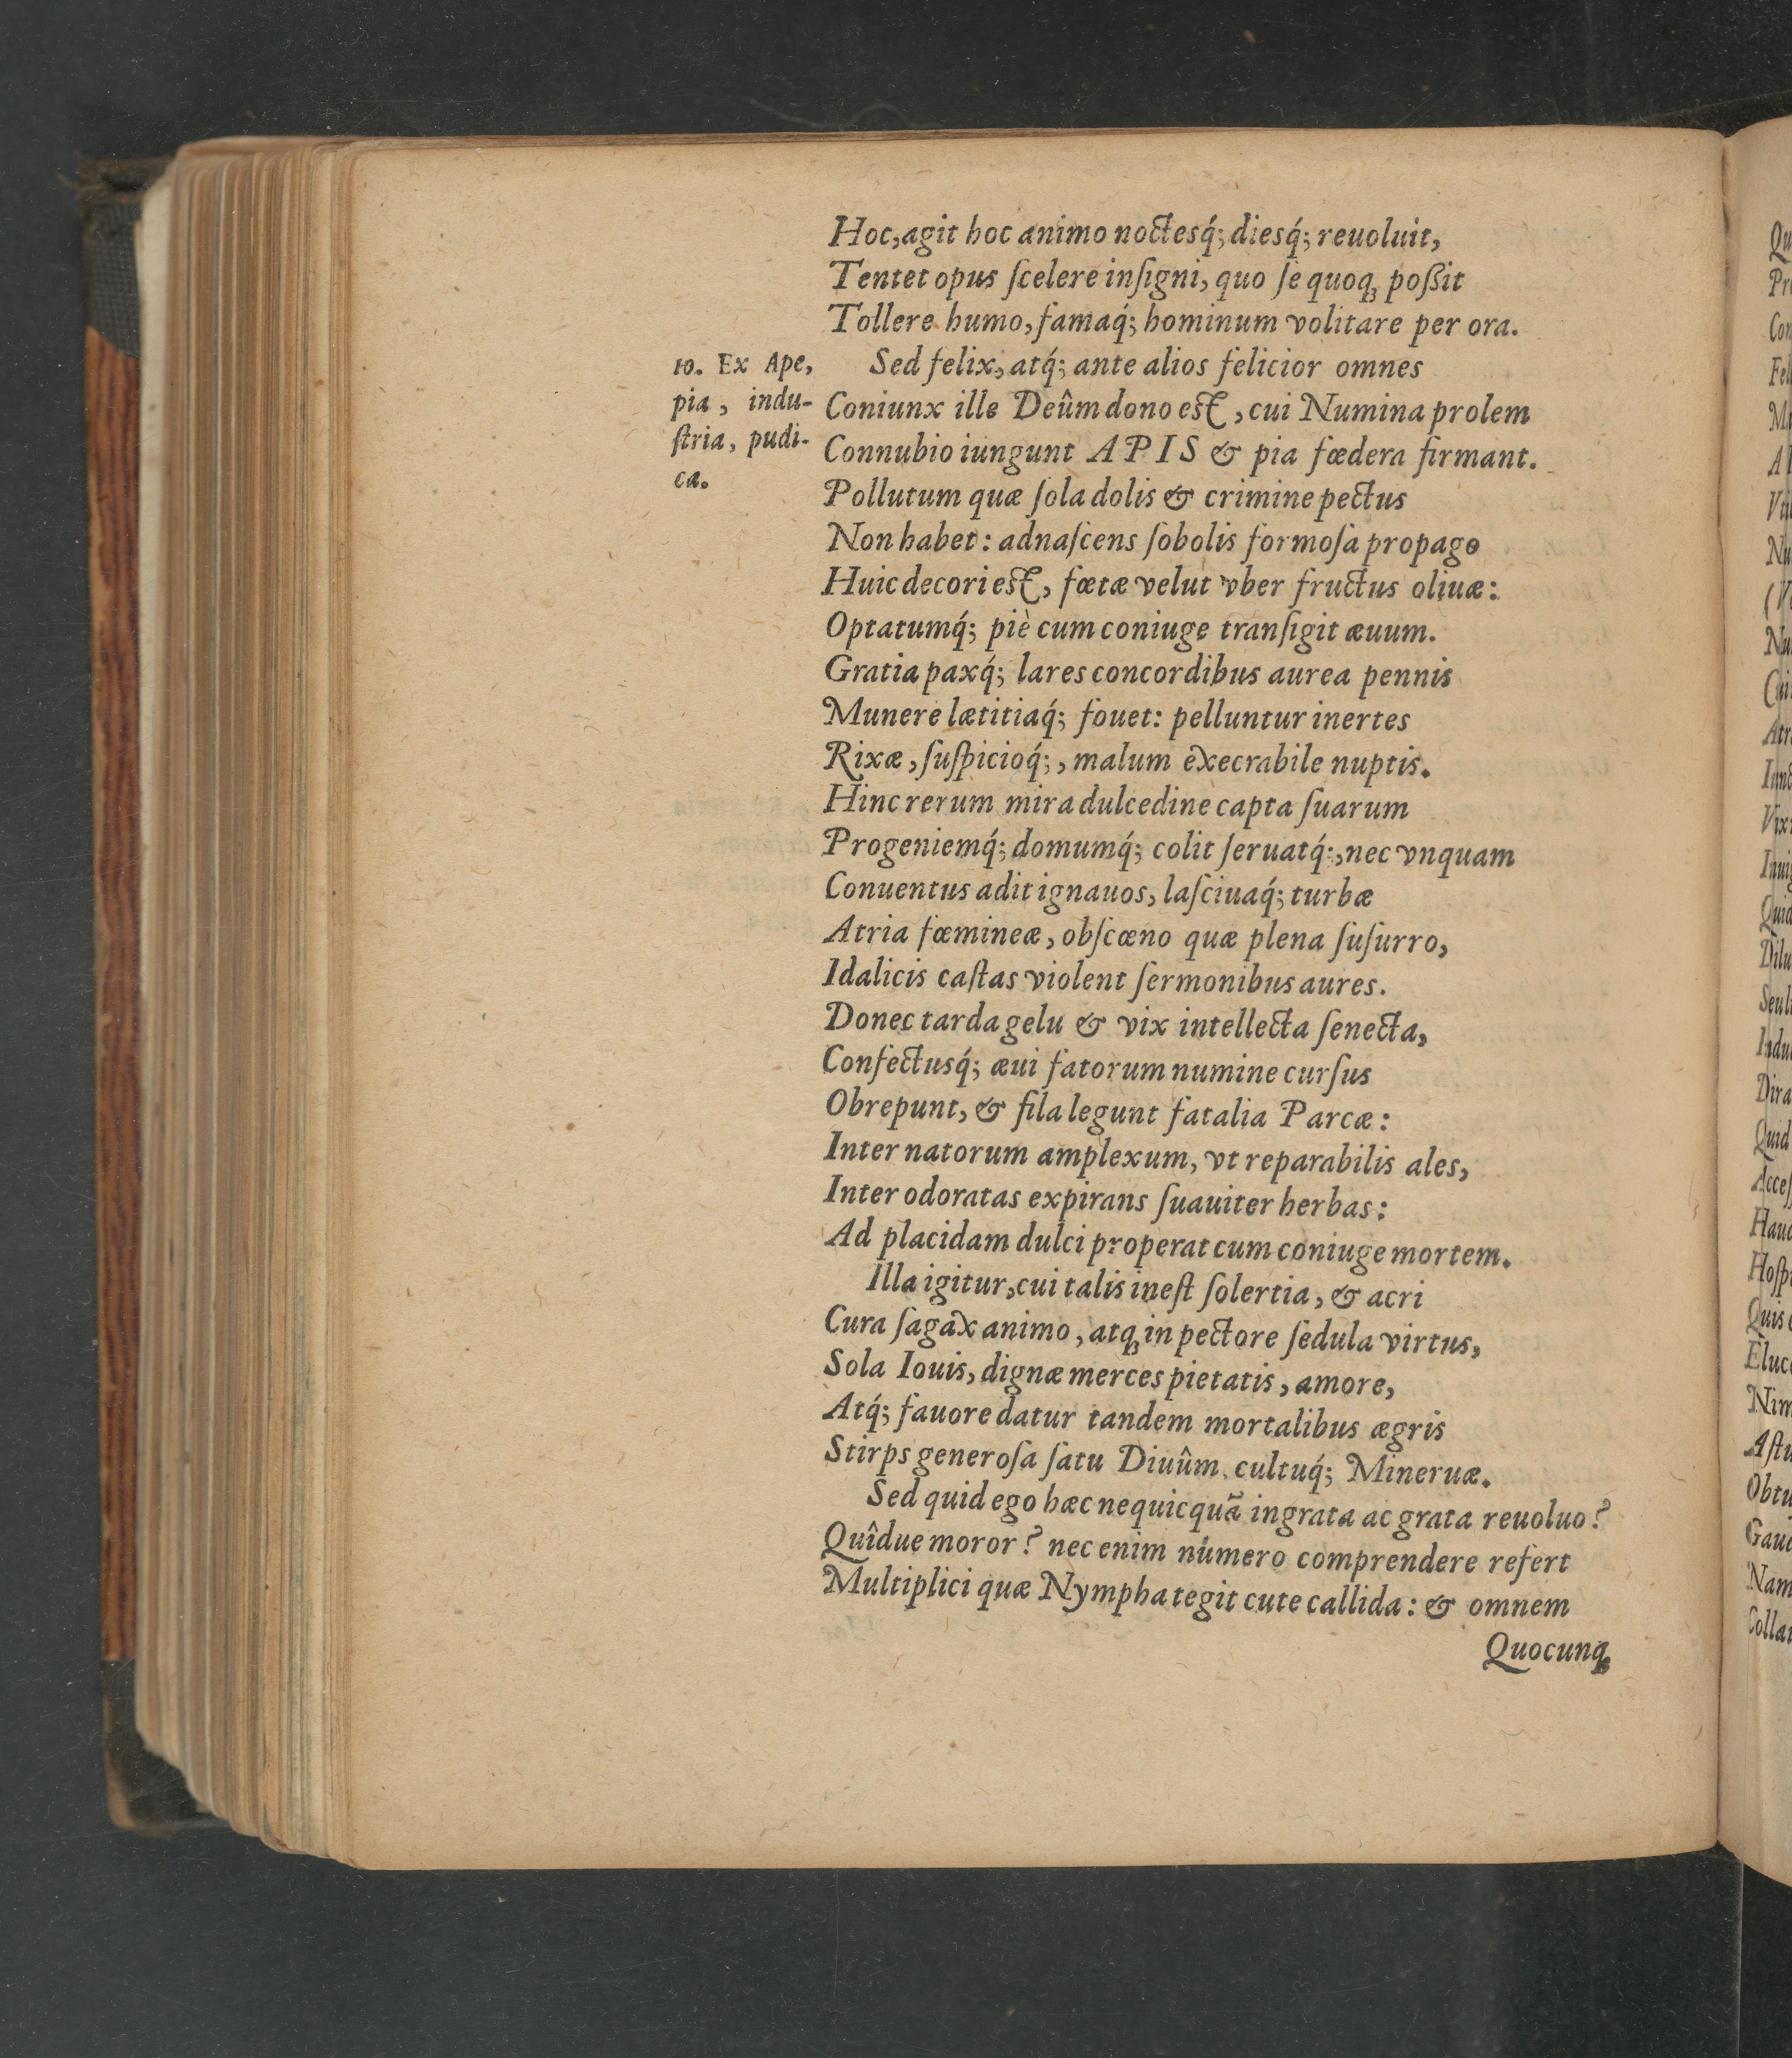 Hoc, agit hoc animo noctesq́; diesq́; reuoluit,
Tentet opus ſcelere inſigni, quo ſe quoqꝫ poßit
Tollere humo, famaq́; hominum volitare per ora.
10. Ex Ape,
pia, indu-
ſtria, pudi-
ca.
Sed felix, atq́; ante alios felicior omnes
Coniunx ille Deûm dono est, cui Numina prolem
Connubio iungunt APIS & pia fœdera firmant.
Pollutum quæ ſola dolis & crimine pectus
Non habet: adnaſcens ſobolis formoſa propago
Huic decori est, fœtæ velut vber fructus oliuæ:
Optatumq́; piè cum coniuge tranſigit æuum.
Gratia paxq́; lares concordibus aurea pennis
Munere lætitiaq́; fouet: pelluntur inertes
Rixæ, ſuſpicioq́;, malum execrabile nuptis.
Hinc rerum mira dulcedine capta ſuarum
Progeniemq́; domumq́; colit ſeruatq́;, nec vnquam
Conuentus adit ignauos, laſciuaq́; turbæ
Atria fœmineæ, obſcœno quæ plena ſuſurro,
Idalicis caſtas violent ſermonibus aures.
Donec tarda gelu & vix intellecta ſenecta,
Confectusq́; æui fatorum numine curſus
Obrepunt, & fila legunt fatalia Parcæ:
Inter natorum amplexum, vt reparabilis ales,
Inter odoratas expirans ſuauiter herbas:
Ad placidam dulci properat cum coniuge mortem.
Illa igitur, cui talis ineſt ſolertia, & acri
Cura ſagax animo, atqꝫ in pectore ſedula virtus,
Sola Iouis, dignæ merces pietatis, amore,
Atq́; fauore datur tandem mortalibus ægris
Stirps generoſa ſatu Diuûm cultuq́; Mineruæ.
Sed quid ego hæc nequicquã ingrata ac grata reuoluo?
Quîdue moror? nec enim numero comprendere refert
Multiplici quæ Nympha tegit cute callida: & omnem
Quocunqꝫ